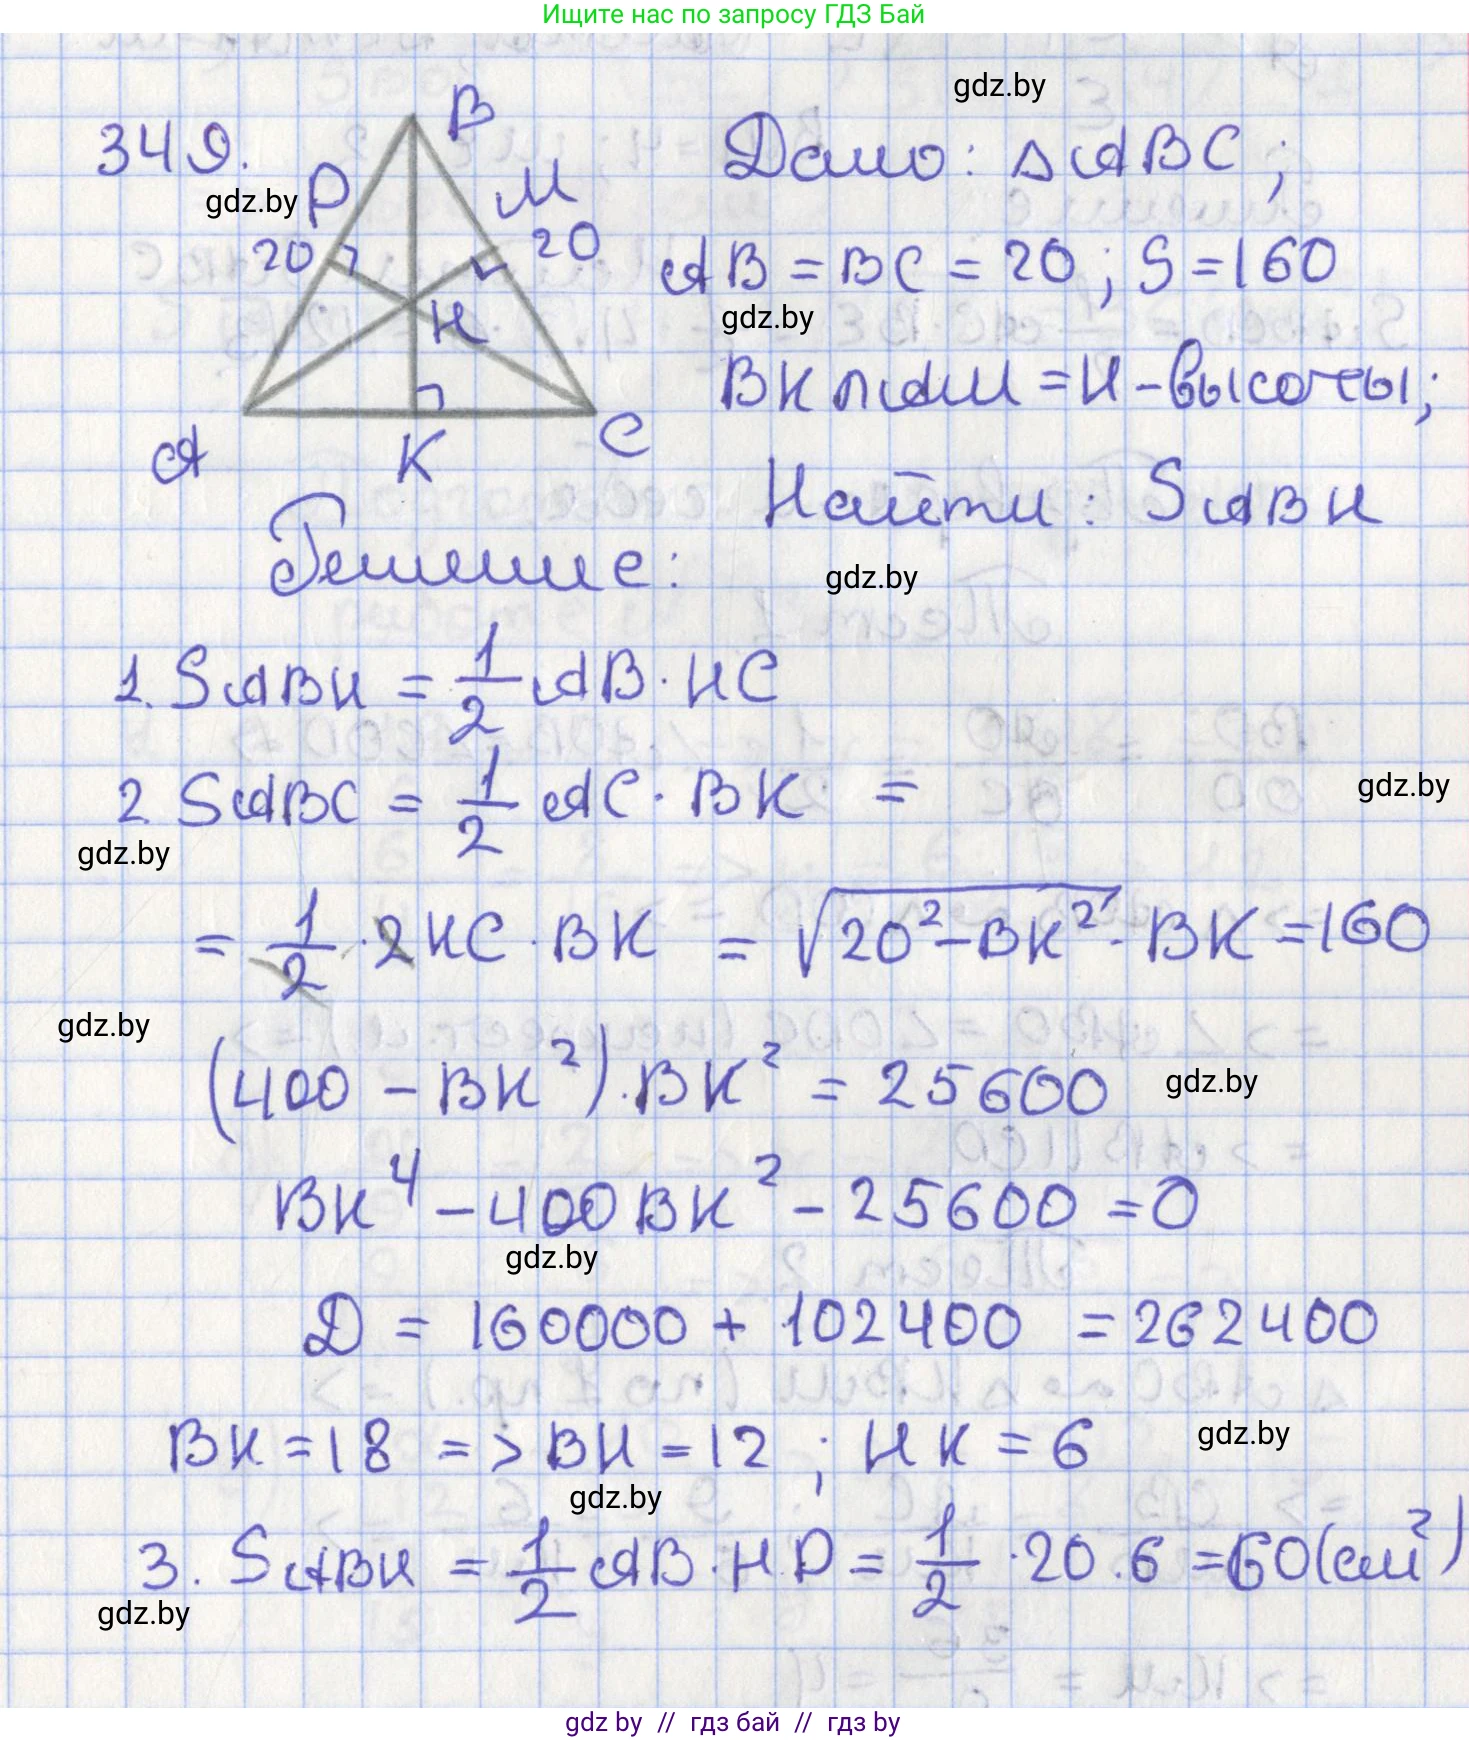 Ищите нас по запросу ГДЗ Бай
gdz.by
349.
B
P
M
gdz.by
20
20
H
A
K
C
Дано: △ABC;
AB = BC = 20; S = 160
gdz.by
BK ∩ AM = H - высоты;
Найти: SABH
Решение:
gdz.by
1. SABH = 1/2 AB · HC
2. SABC = 1/2 AC · BK =
gdz.by
gdz.by
= 1/2 · 2KC · BK = √(20² - BK²) · BK = 160
gdz.by
(400 - BK²) · BK² = 25600
gdz.by
BK⁴ - 400BK² - 25600 = 0
gdz.by
D = 160000 + 102400 = 262400
BK = 18 => BH = 12; HK = 6
gdz.by
gdz.by
3. SABH = 1/2 AB · HP = 1/2 · 20 · 6 = 60 (см²)
gdz.by
gdz by // гдз бай // гдз by